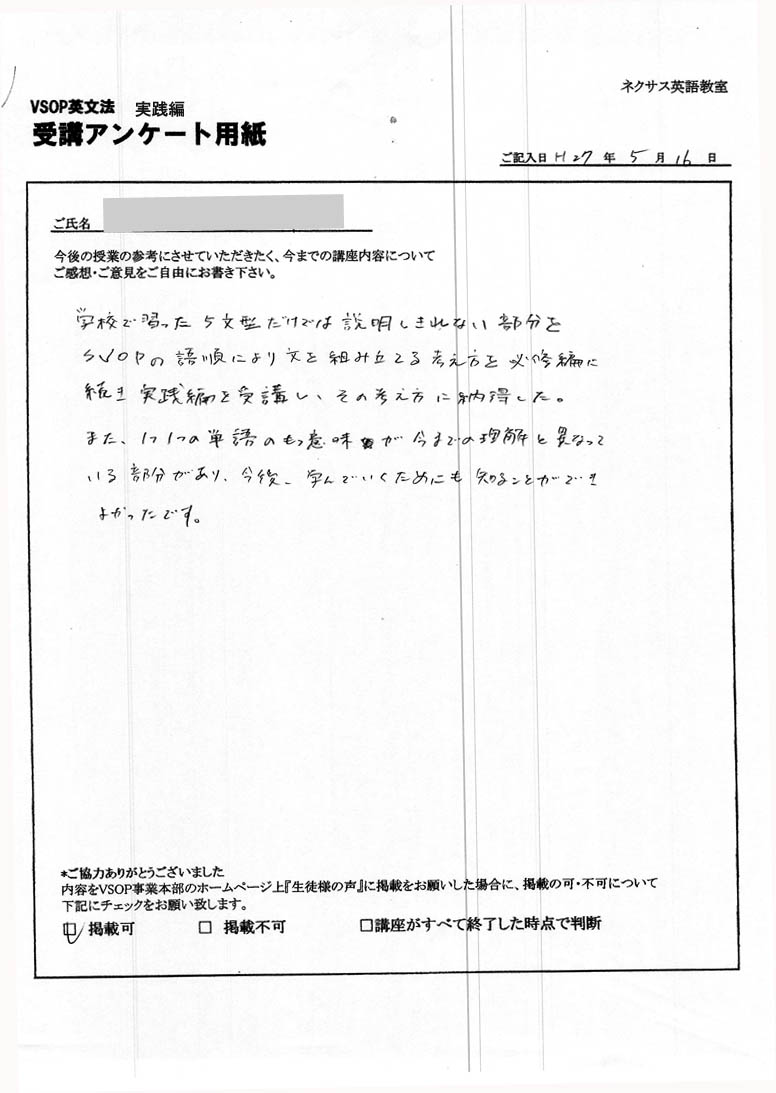 ネクサス英語教室
VSOP英文法 実践編
受講アンケート用紙
ご記入日 H27 年 5 月 16 日
ご氏名
今後の授業の参考にさせていただきたく、今までの講座内容について
ご感想・ご意見をご自由にお書き下さい。
学校で習った5文型だけでは説明しきれない部分を
SVOPの語順により文を組み立てる考え方を必修編に
続き実践編を受講し、その考え方に納得した。
また、1つ1つの単語のもつ意味が今までの理解と異なって
いる部分があり、今後、学んでいくためにも知ることができ
よかったです。
*ご協力ありがとうございました
内容をVSOP事業本部のホームページ上『生徒様の声』に掲載をお願いした場合に、掲載の可・不可について
下記にチェックをお願い致します。
☑ 掲載可 □ 掲載不可 □講座がすべて終了した時点で判断